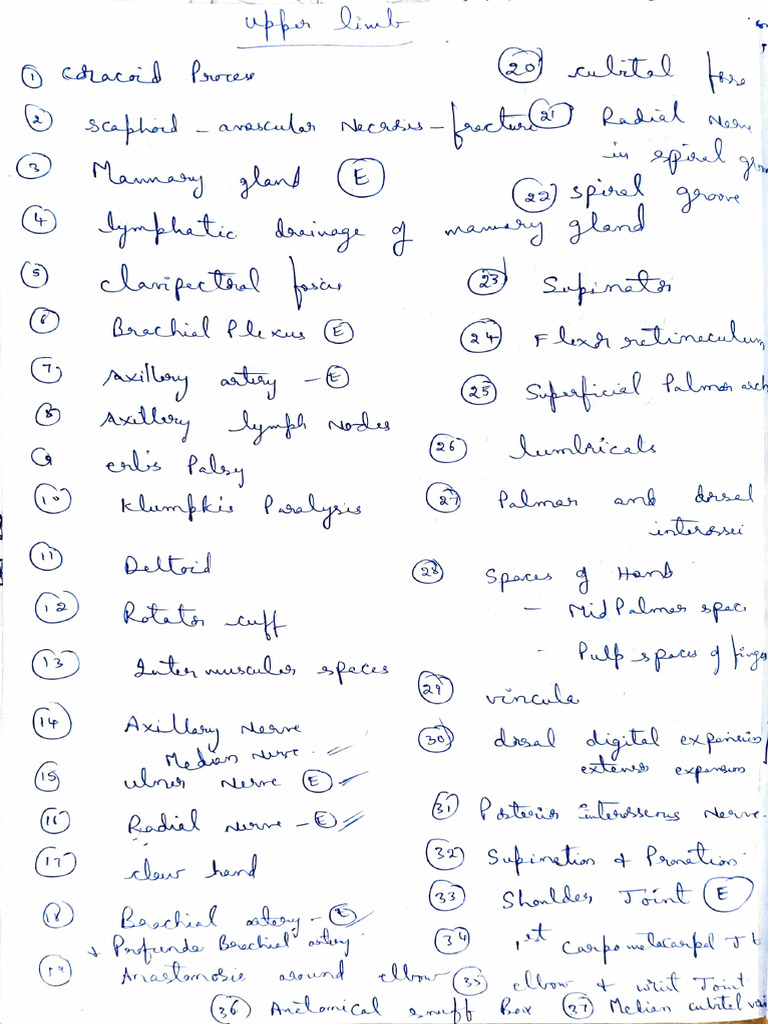 Upper limb
1 Coracoid Process
2 Scaphoid - avascular Necrosis - fracture
3 Mammary gland E
4 lymphatic drainage of mammary gland
5 Clavipectoral fascia
6 Brachial Plexus E
7 Axillory artery - E
8 Axillory lymph Nodes
9 erbs Palsy
10 Klumpkis Paralysis
11 Deltoid
12 Rotator cuff
13 Inter muscular spaces
14 Axillary Nerve
Median Nerve
15 ulner Nerve E
16 Radial nerve - E
17 claw hand
18 Brachial artery - E
+ Profunda Brachial artery
19 Anastomosis around elbow
20 cubital
21 Radial Nerve
in spiral
22 spiral groove
23 Supinator
24 Flexor retineculum
25 Superficial Palmar arch
26 lumbricals
27 Palmar and dorsal
interossei
28 Spaces of Hand
- Mid Palmar
- Pulp spaces of
29 vincula
30 dorsal digital
extensor expansion
31 Posterior Interosseous Nerve.
32 Supination & Pronation
33 Shoulder Joint E
34 1st Carpometacarpal Jt
35 elbow & wrist Joint
36 Anatomical snuff Box
37 Median cubital